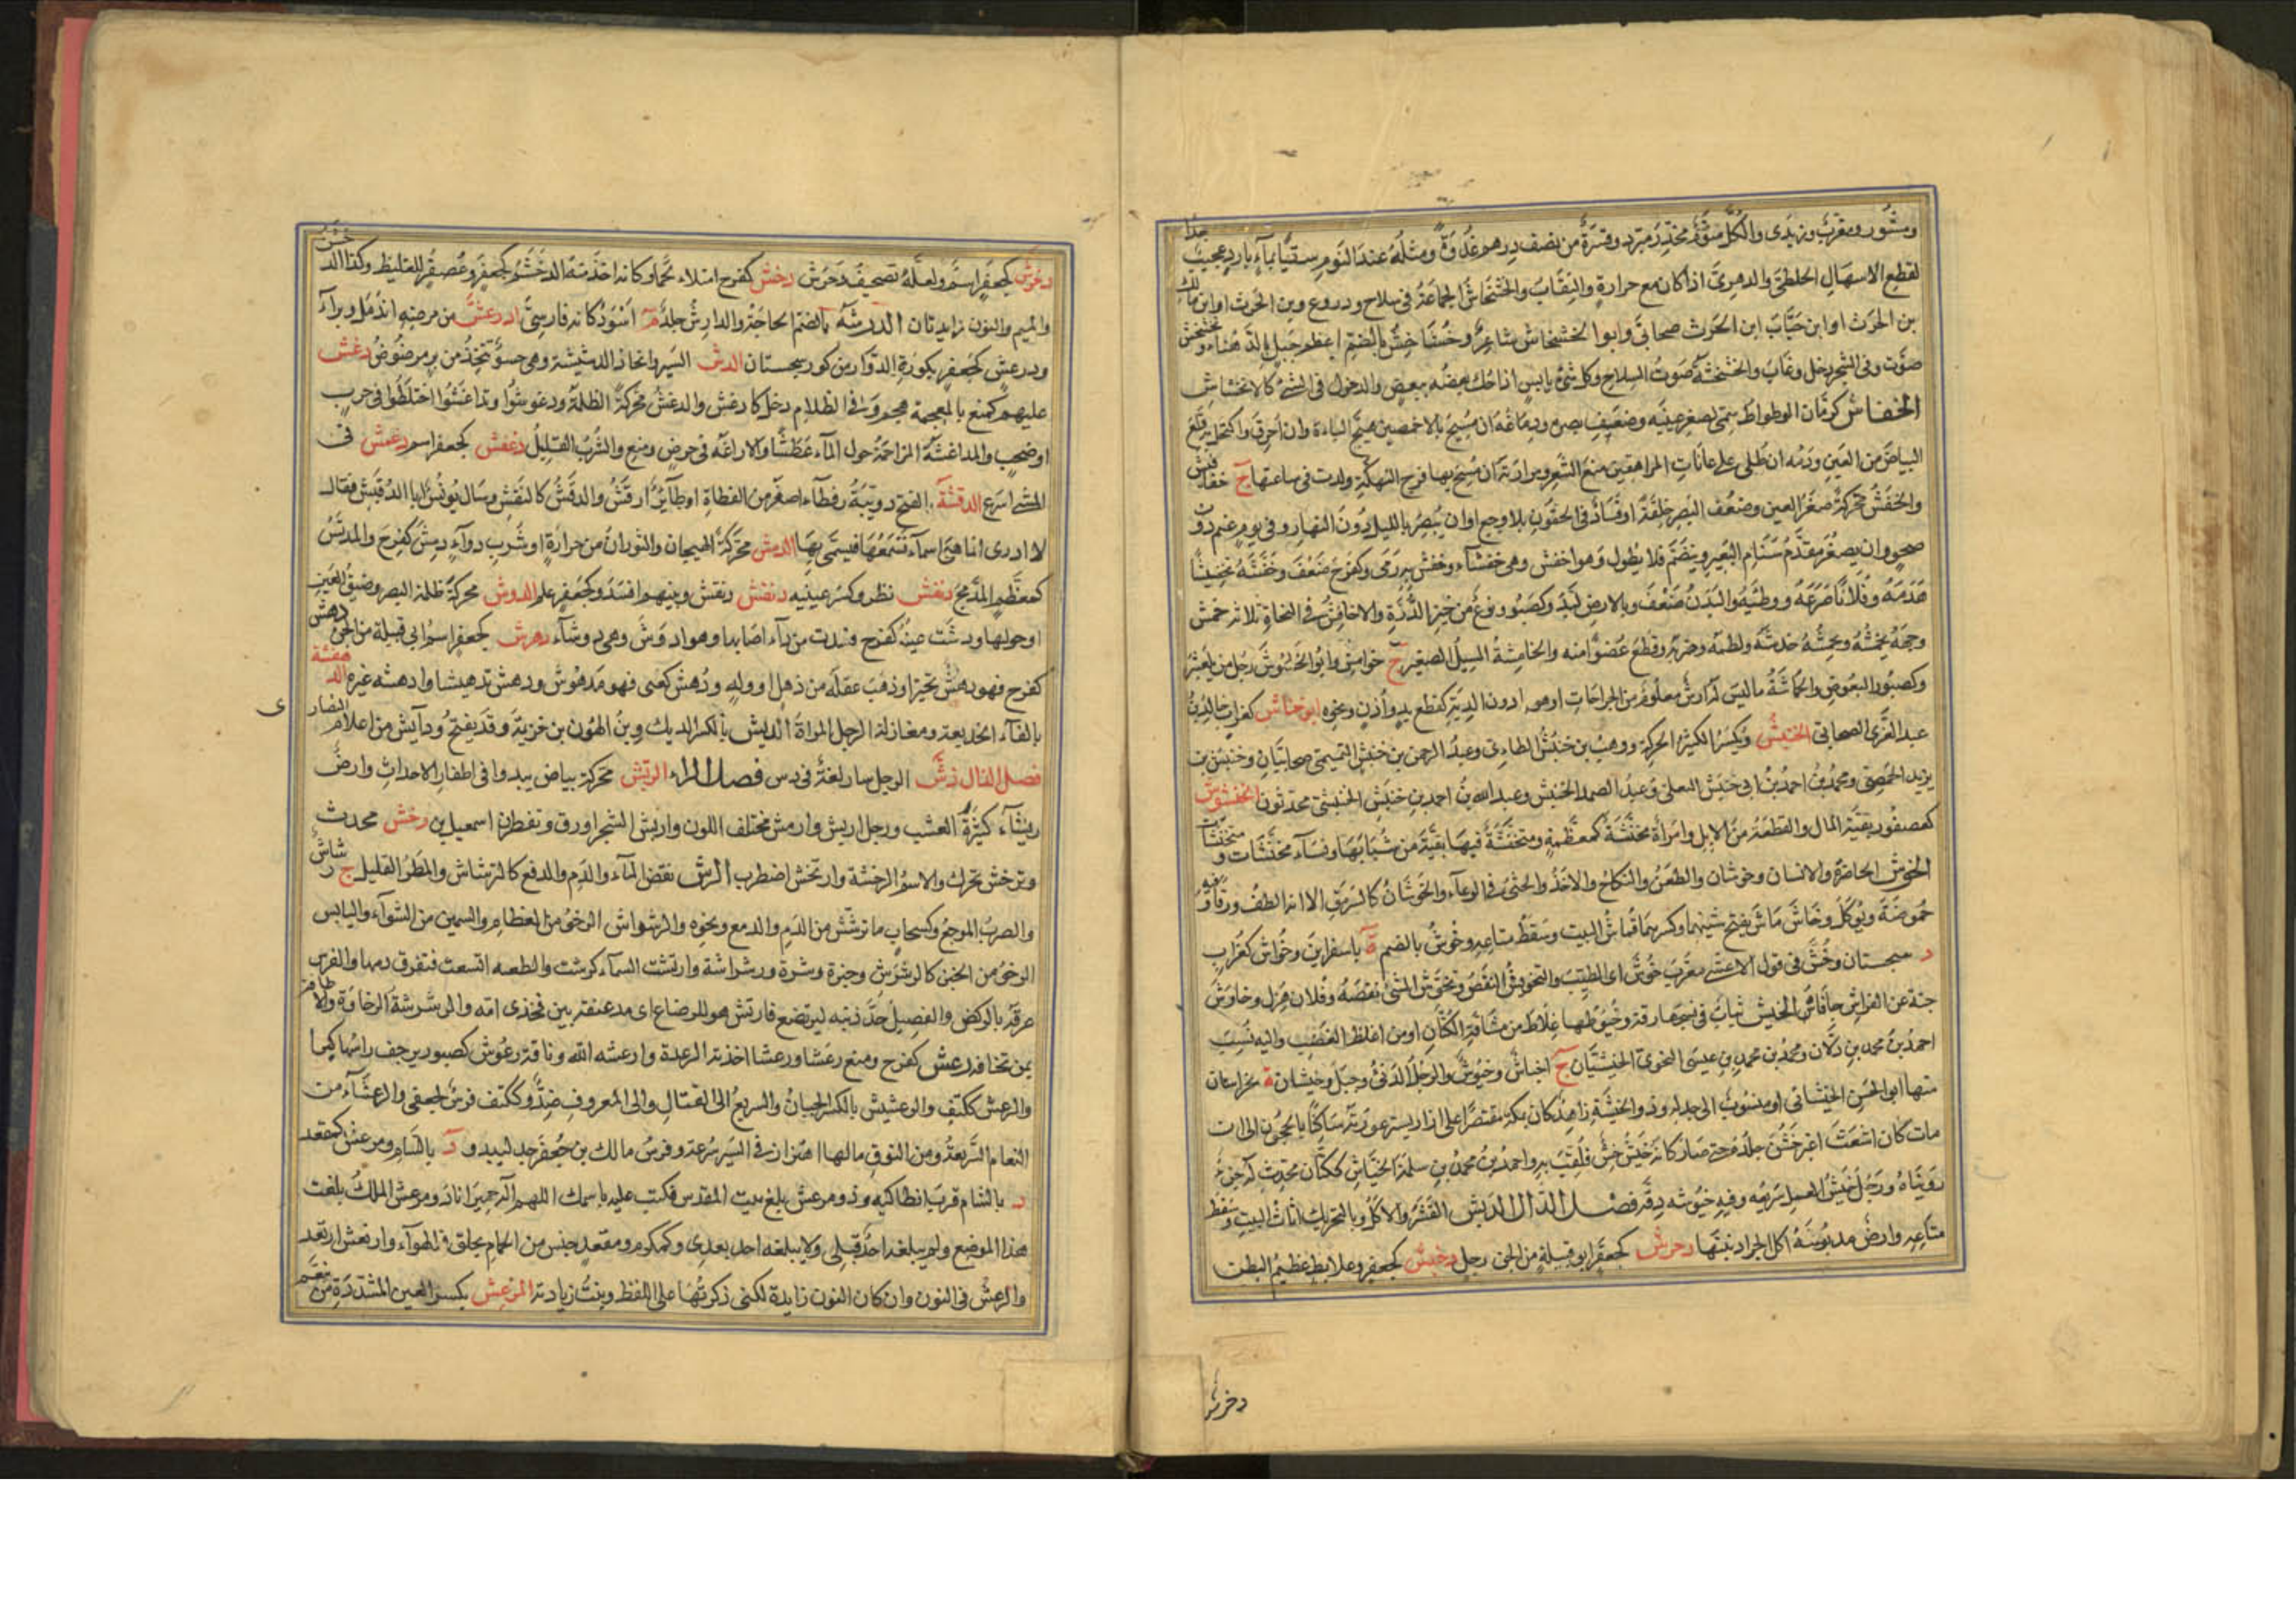 ومنثور ومقرن وزبدى والكل منوم مخدر مبرد وقشره من نصف درهم غدوة ومثله عند النوم سقيا بماء بارد عجيب جدا
لقطع الاسهال الخلطى والدموى اذا كان مع حرارة والتهاب والخشخاش الجماعة فى سلاح ودروع وبن الحرث او ابن مالك
بن الحرث او ابن جناب ابن الحرث صحابى وابوا الخشخاش شاعر وخشاخش بالضم اعظم جبل بالدهناء وتخشخش
صوت وفى الشجر دخل وغاب والخشخشة صوت السلاح وكل شئ يابس اذا حك بعضه ببعض والدخول فى الشئ كالانخشاش
الخفاش كرمان الوطواط سمى لصغر عينيه وضعف بصره ودماغه ان مسح بالاخمصين هيج الباءة وان احرق واكتحل به قلع
البياض من العين ودمه ان طلى على عانات المراهقين منع الشعر ومرارته ان مسح بها فرج المنهكة ولدت فى ساعتها ج خفافيش
والخفش محركة صغر العين وضعف البصر خلقة او فساد فى الجفون بلا وجع او ان يبصر بالليل دون النهار وفى يوم غيم دون
صحو وان يصغر مقدم سنام البعير وينضم فلا يطول وهو اخفش وهى خفشاء وخفش به رمى وكفرح ضعف وخفشه تخفيشا
هدمه وفلانا صرعه ووطئه والبدن ضعف وبالارض لبد وكصبور نوع من خبز الذرة والاخافش فى النحاة ثلاثة خمش
وجهه يخمشه ويخمشه خدشه ولطمه وضربه وقطع عضوا منه والخامشة المسيل الصغير ج خوامش وابو الخاموش رجل من بلعنبر
وكصبور البعوض والخماشة ما ليس له ارش معلوم من الجراحات او هو دون الدية كقطع يد واذن ونحوه ابو خناش كغراب خالد بن
عبد العزى الصحابى الخنبش ويكسر الكثير الحركة ووهب بن خنبش الطائى وعبد الرحمن بن خنبش التميمى صحابيان وخنبش بن
يزيد الحمصى ومحمد بن احمد بن ابى خنبش البعلى وعبد الصمد الخنبش وعبد الله بن احمد بن خنبش الخنبشى محدثون الخنشوش
كعصفور بقية المال والقطعة من الابل وامراة مخنشة كمعظمة ومتخنشة فيها بقية من شبابها ونساء مخنشات ومتخنشات
الخوش الخاصرة والانسان وخوشان والطعن والنكاح والاخذ والحثى فى الوعاء والخوشان كالسرمق الا انه الطف ورقا وفيه
حموضة ويؤكل وخاش ماش بفتح شينهما وكسرهما قماش البيت وسقط متاعه وخوش بالضم ة باسفراين وخواش كغراب
د بسجستان وخش فى قول الاعشى معرب خوش اى الطيب والتخويش النقص وتخوش الشئ نقصه وفلان هزل وخاوش
جنبه عن الفراش جافاه الخيش ثياب فى نسجها رقة وخيوطها غلاظ من مشاقة الكتان او من اغلظ العصب واليه نسب
احمد بن محمد بن دلان ومحمد بن محمد بن عيسى النحوى الخيشيان ج اخياش وخيوش والرجل الدنئ وجبل وخيشان ة بخراسان
منها ابو الحسن الخيشانى او منسوب الى جد له وذو الخيشة زاهد كان بمكة مقتصرا على ازار يستر عورته ساكنا بالحجون الى ان
مات كان اشعث اغبر خشن جلده حتى صار كانه خيش خش فلقب به واحمد بن محمد بن سلمة الخياش ككتان محدث له جزء
رويناه ورجل خيش العمل سريعه وفيه خيوشة دقة فصل الدال الدبش القشر والاكل وبالتحريك اثاث البيت وسقط
متاعه وارض مدبوشة اكل الجراد نبتها دحرش كجعفر ابو قبيلة من الجن رجل دخبش كجعفر وعلابط عظيم البطن
دخرش
دخرش كجعفر اسم ولعله تصحيف دحرش دخش كفرح امتلاء لحما وكانه اخذ منه الدخشم كجعفر وعصفر للغليظ وكذا الدخشن
والميم والنون زايدتان الدرشة بالضم اللجاجة والدارش جلد م اسود كانه فارسى ادرعش من مرضه اندمل وبراء
ودرعش كجعفر بكورة الدوار من كور سجستان الدش السير واتخاذ الدشيشة وهى حسو تتخذ من بر مرضوض دغش
عليهم كمنع بالمعجمة هجم وفى الظلام دخل كادغش والدغش محركة الظلمة ودغوشوا وتداغشوا اختلطوا فى حرب
او صخب والمداغشة المزاحمة حول الماء عطشا والاراغة فى حرص ومنع والشرب القليل دغفش كجعفر اسم دغمش فى
المشى اسرع الدقشة بالفتح دويبة رقطاء اصغر من القطاة او طائر ارقش والدقش كالنقش وسال يونس ابا الدقيش فقال
لا ادرى انما هى اسماء نسمعها فنسمى بها الدمش محركة الهيجان والثوران من حرارة او شرب دواء دمش كفرح والمدمش
كمعظم المدمج دنفش نظر وكسر عينيه دنقش دنقش وبينهم افسد وكجعفر علم الدوش محركة ظلمة البصر وضيق العين
او حولها ودشت عينه كفرح فسدت من داء اصابها وهو ادوش وهى دوشاء دهرش كجعفر اسم ابى قبيلة من الجن دهش
كفرح فهو دهش تحير او ذهب عقله من ذهل او وله ودهش كعنى فهو مدهوش ودهش تدهيشا وادهشه غيره الدهفشة
بالفاء الخديعة ومغازلة الرجل المراة الديش بالكسر الديك وبن الهون بن خزيمة وقد يفتح ودائش من اعلام النصارى
فصل الذال ذش الرجل سار لغة فى دس فصل الراء الربش محركة بياض يبدوا فى اظفار الاحداث وارض
ربشاء كثيرة العشب ورجل اربش وارمش مختلف اللون واربش الشجر اورق وتفطر اسمعيل بن رخش محدث
وترخش تحرك والاسم الرخشة وارتخش اضطرب الرش نفض الماء والدم والدمع كالترشاش والمطر القليل ج رشاش
والضرب الموجع وكسحاب ما ترشش من الدم والدمع ونحوه والرشواش الرخو من العظام والسمين من الشواء واليابس
الرخو من الخبز كالرشرش وخبزة وشرة ورشراشة وارتشت السماء كرشت والطعنة اتسعت فتفرق دمها والفرس
عرقه بالركض والفصيل حد ذنبه ليرتضع فارتش هو للرضاع اى مد عنقه بين فخذى امه والرشرشة الرخاوة والاطافة
بمن تخافه رعش كفرح ومنع رعشا ورعشا اخذته الرعدة وارعشه الله وناقة رعوش كصبور يرجف راسها كبرا
والرعش ككتف والرعشيش بالكسر الجبان والسريع الى القتال والى المعروف ضد وككتف فرس لجعفى والرعشاء من
النعام السريعة ومن النوق ما لها اهتزاز فى السير سرعة وفرس مالك بن جعفر جد لبيد و د بالشام ومرعش كمقعد
د بالشام قرب انطاكيه وذو مرعش بلغ بيت المقدس فكتب عليه باسمك اللهم اله حمير انا ذو مرعش الملك بلغت
هذا الموضع ولم يبلغه احد قبلى ولا يبلغه احد بعدى وكمكرم ومقعد جنس من الحمام يحلق فى الهواء وارتعش ارتعد
والرعشن فى النون وان كان النون زايدة لكنى ذكرتها على اللفظ وبينت زيادته المرغش بكسر الغين المشددة من ينعم